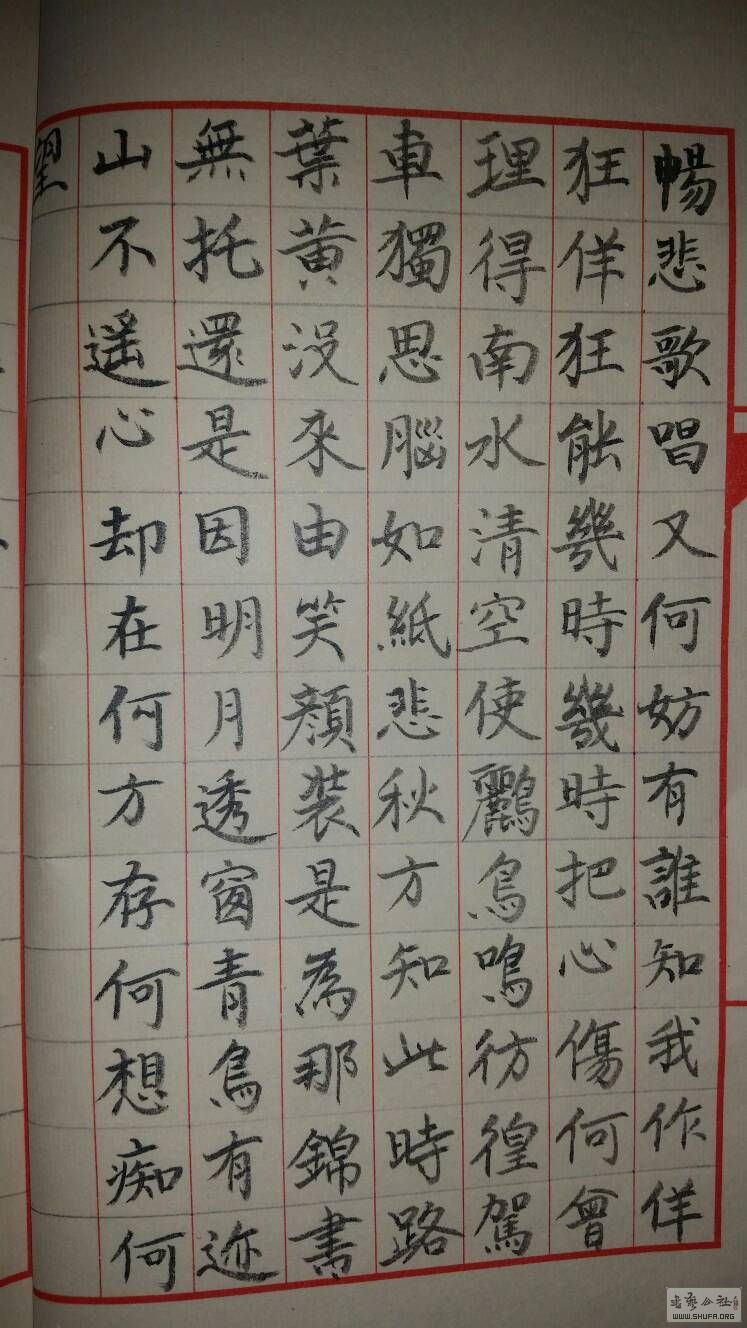 暢悲歌唱又何妨有誰知我作佯
狂佯狂能幾時幾時把心傷何曾
理得南水清空使鸝鳥鳴彷徨駕
車獨思腦如紙悲秋方知此時路
葉黃沒來由笑顏裝是為那錦書
無托還是因明月透窗青鳥有迹
山不遥心却在何方存何想痴何
望
WWW.SHUFA.ORG